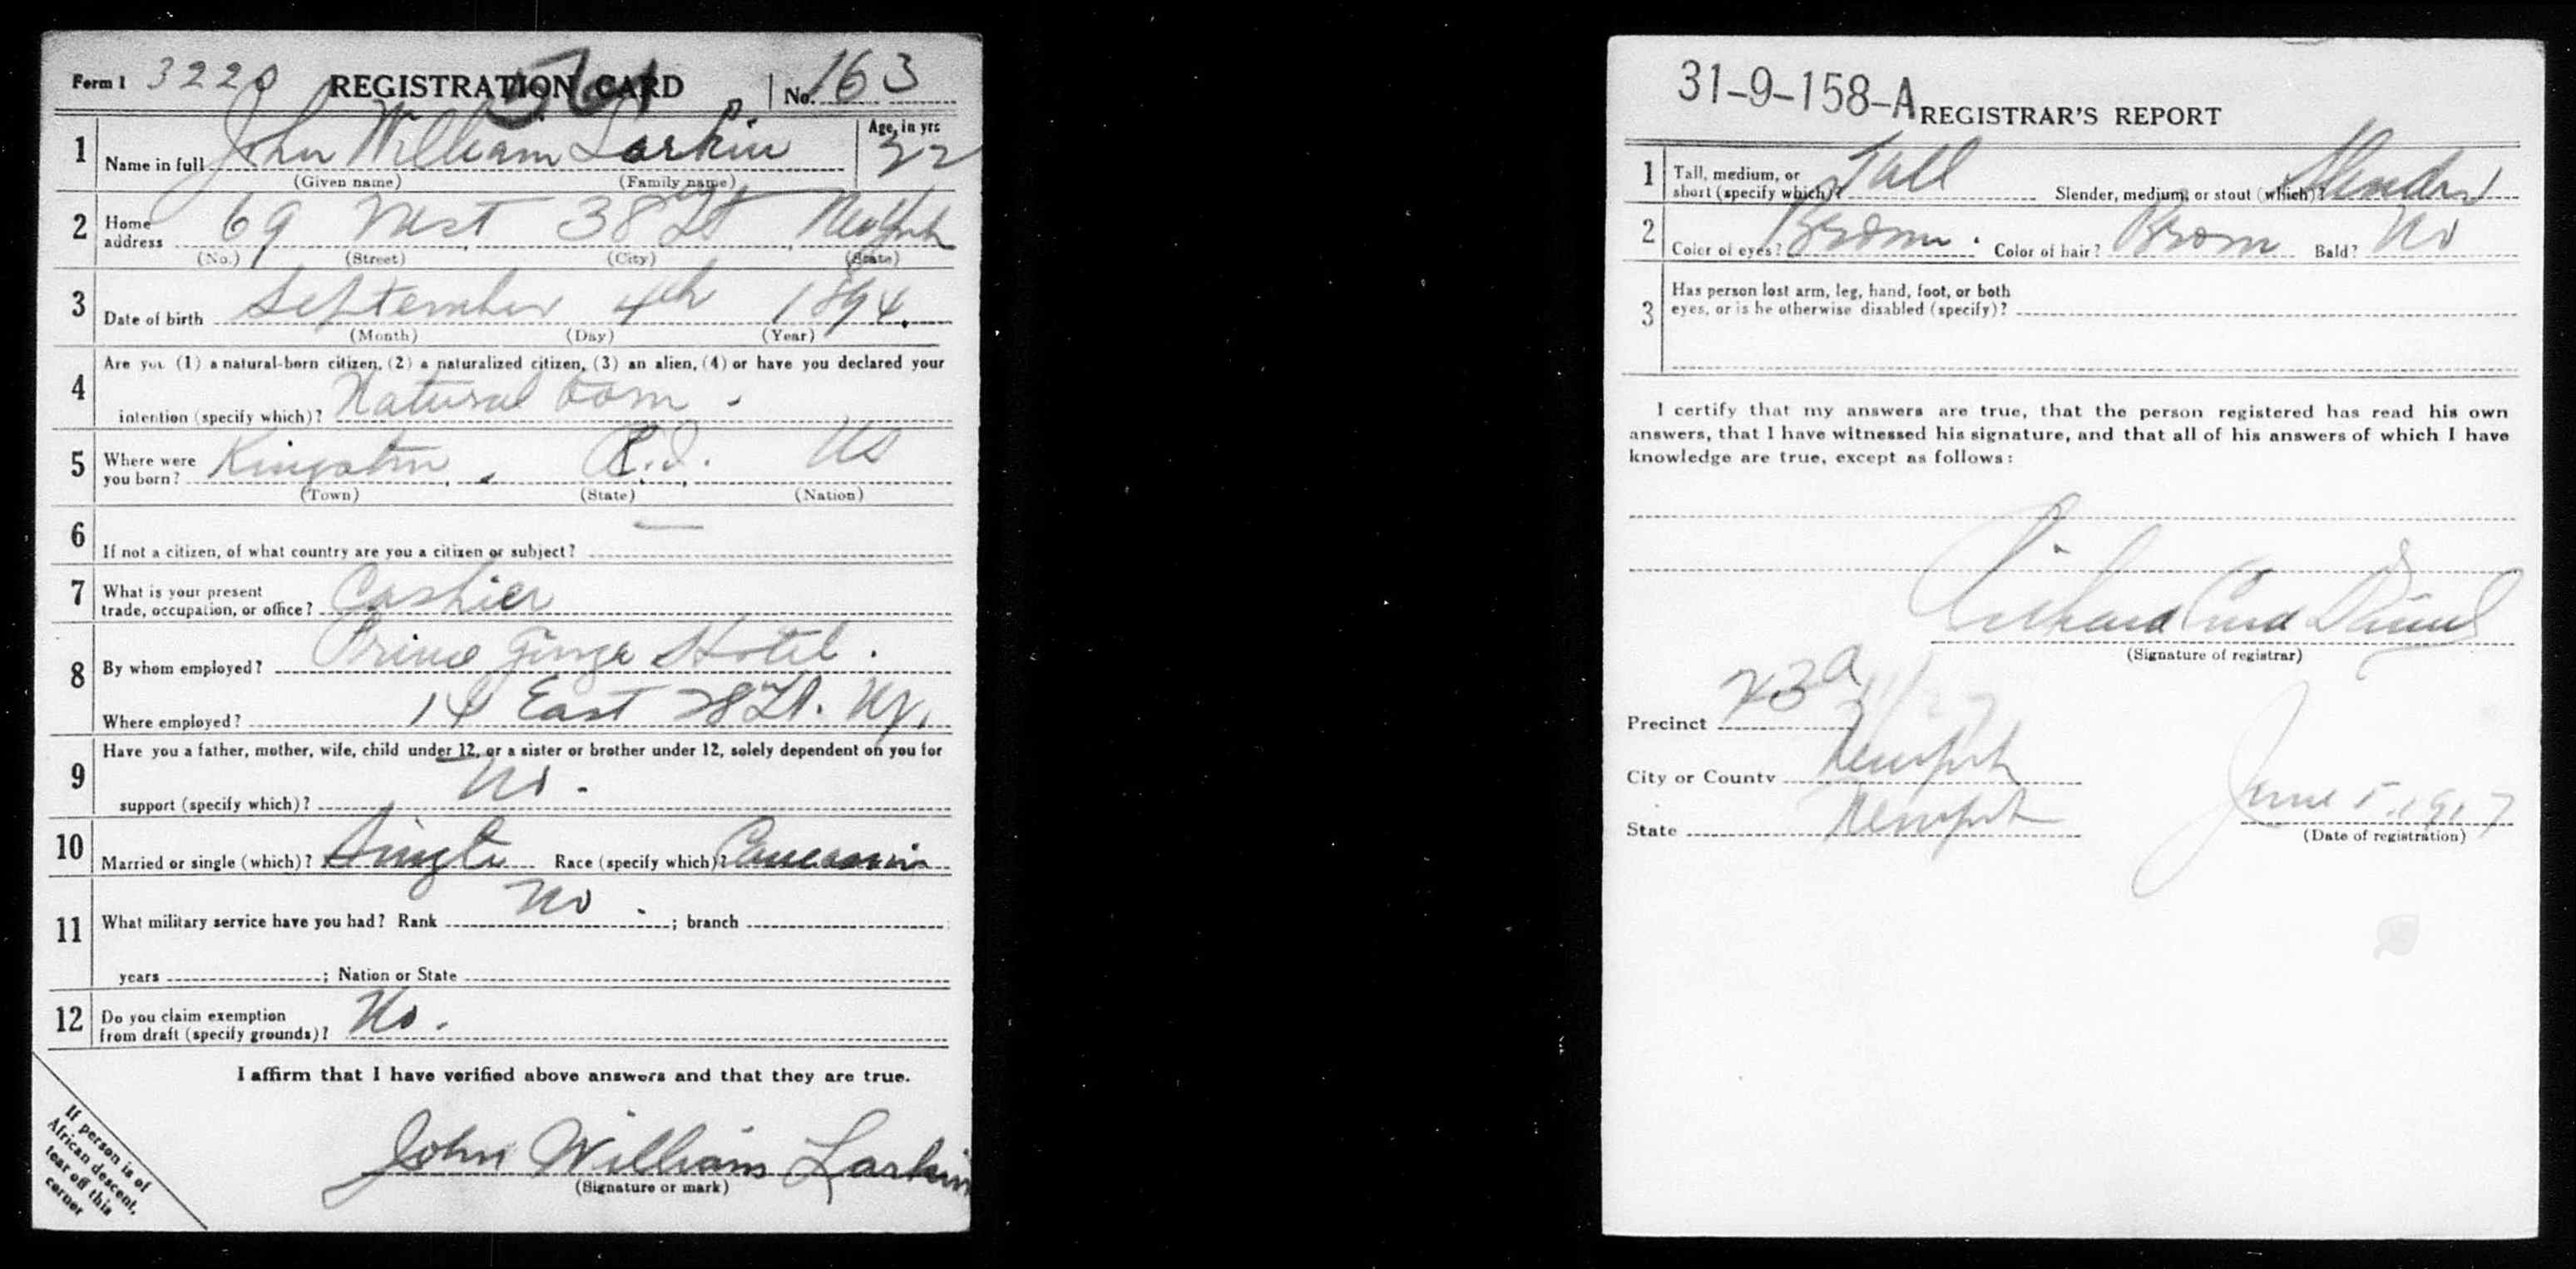 Form 1 3220 REGISTRATION CARD No. 163
1 Name in full John William Larkin Age, in yrs 22
(Given name) (Family name)
2 Home address 69 West 38th St New York
(No.) (Street) (City) (State)
3 Date of birth September 4th 1894
(Month) (Day) (Year)
4 Are you (1) a natural-born citizen, (2) a naturalized citizen, (3) an alien, (4) or have you declared your
intention (specify which)? Natural born -
5 Where were you born? Kingston, R.I. US
(Town) (State) (Nation)
6 If not a citizen, of what country are you a citizen or subject? —
7 What is your present
trade, occupation, or office? Cashier
8 By whom employed? Prince George Hotel.
Where employed? 14 East 28 St. NY.
9 Have you a father, mother, wife, child under 12, or a sister or brother under 12, solely dependent on you for
support (specify which)? No.
10 Married or single (which)? Single Race (specify which)? Caucasian
11 What military service have you had? Rank No. ; branch
years ; Nation or State
12 Do you claim exemption
from draft (specify grounds)? No.
I affirm that I have verified above answers and that they are true.
John William Larkin
(Signature or mark)
If person is of
African descent,
tear off this
corner
31-9-158-A REGISTRAR'S REPORT
1 Tall, medium, or
short (specify which)? Tall Slender, medium, or stout (which)? Slender
2 Color of eyes? Brown. Color of hair? Brown Bald? No
3 Has person lost arm, leg, hand, foot, or both
eyes, or is he otherwise disabled (specify)?
I certify that my answers are true, that the person registered has read his own
answers, that I have witnessed his signature, and that all of his answers of which I have
knowledge are true, except as follows:
Richard
(Signature of registrar)
Precinct 23a
City or County New York
State New York June 5, 1917
(Date of registration)